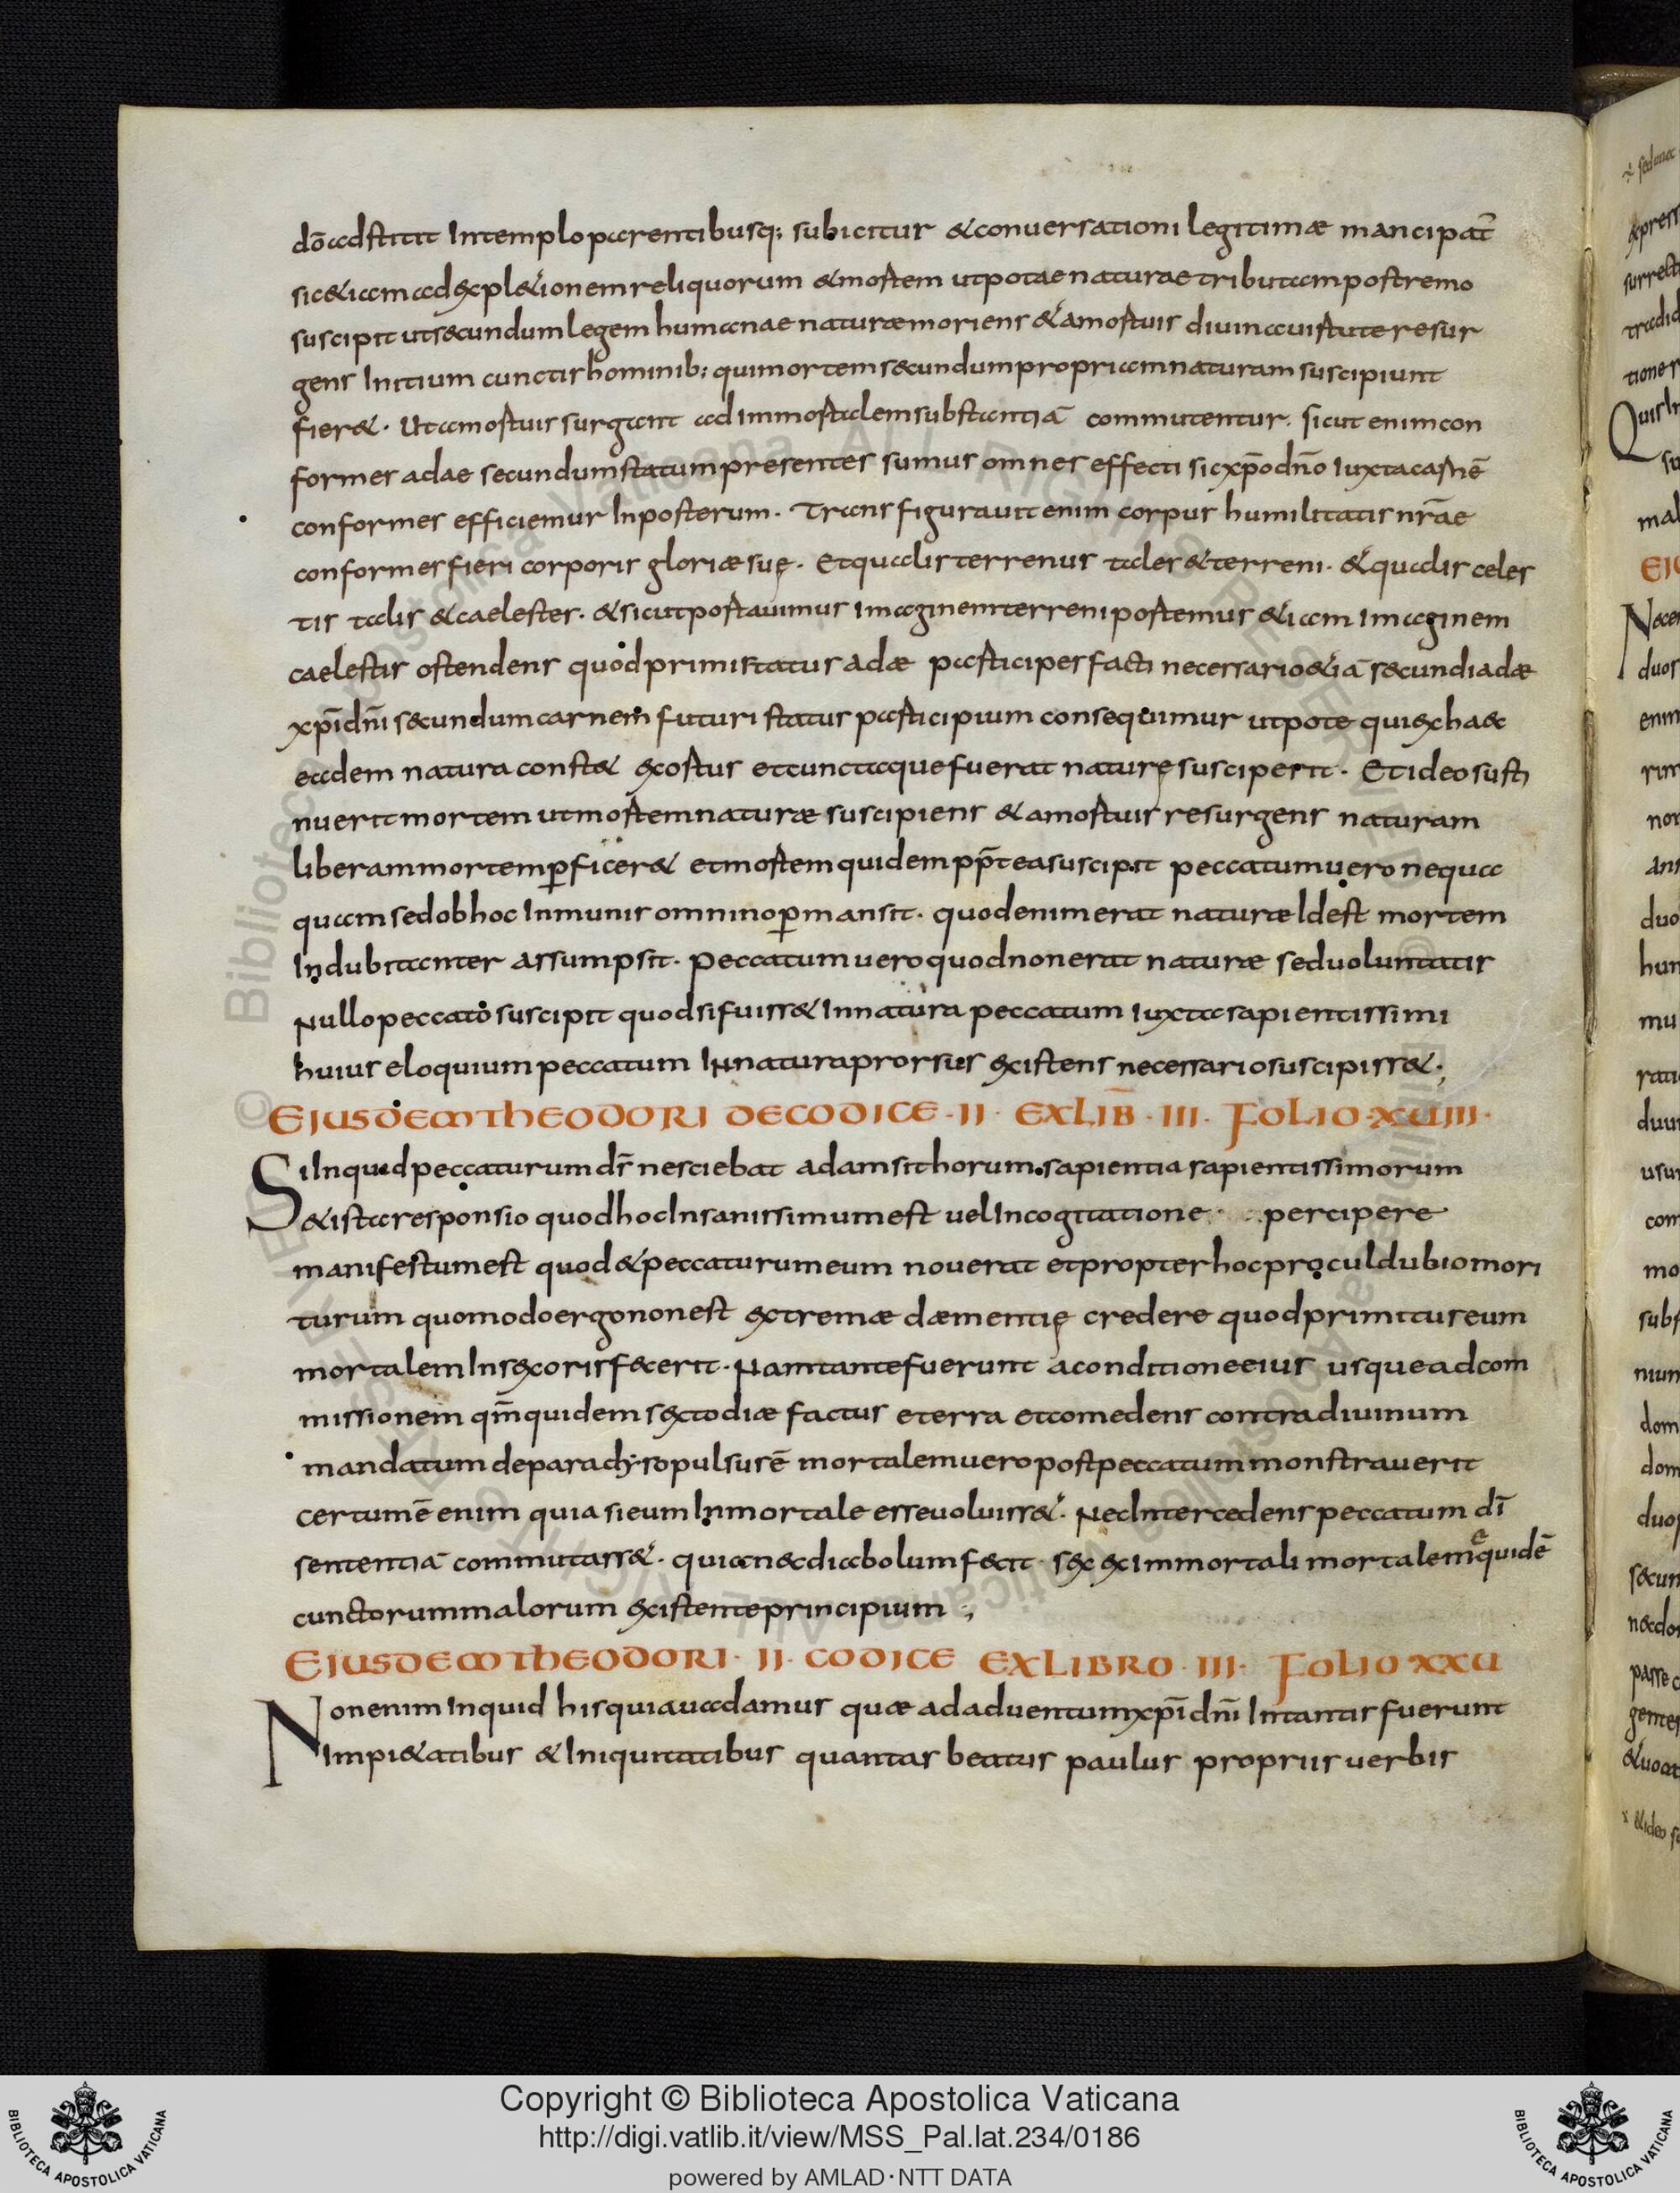 dō adstitit Intemplo parentibusq; subicitur &conuersationi legitimæ mancipat̄
sic&iam adexpl&ionem reliquorum &mortem utpotae naturae tributam postremo
suscipit utsecundum legem humanae naturæ moriens &amortuis diuina uirtute resur
gens Initium cunctis hominib; quimortem secundum propriam naturam suscipiunt
fier&. Ut amortuis surgant ad Immortalem substantiā commutentur. sicut enim con
formes adae secundum statum presentes sumus omnes effecti sic xp̄o dn̄o Iuxta carnē
conformes efficiemur Inposterum. Transfigurauit enim corpus humilitatis nr̄ae
conformes fieri corporis gloriæ suę. Etqualis terrenus tales &terreni. &qualis celes
tis talis &caelestes. &sicut portauimus Imaginem terreni portemus &iam Imaginem
caelestis ostendens quod primi status adæ participes facti necessario &iā secundi adæ
xp̄i dn̄i secundum carnem futuri status participium consequimur utpote qui exhac
eadem natura const& exortus etcunctaque fuerat naturę susciperit. Et ideo susti
nuerit mortem utmortem naturæ suscipiens &amortuis resurgens naturam
liberam mortem p̄ficer& etmortem quidem pp̄tea suscipit peccatum uero nequa
quam sed obhoc Inmunis omnino p̄mansit. quod enim erat naturæ Idest mortem
Indubitanter assumpsit. peccatum uero quod non erat naturæ sed uoluntatis
Nullo peccato suscipit quod si fuiss& Innatura peccatum Iuxta sapientissimi
huius eloquium peccatum INnatura prorsus existens necessario suscipiss&.;
EJUSDEM THEODORI DECODICE · II · EXLIB̄ · III · FOLIO · XUIII ·
Si Inquid peccaturum dr̄ nesciebat adam sit horum sapientia sapientissimorum
&ista responsio quod hoc Insanissimum est uel Incogitatione percipere
manifestum est quod &peccaturum eum nouerat etpropter hoc procul dubio mori
turum quomodo ergo non est extremæ dæmentię credere quod primitus eum
mortalem Insex oris fecerit. Nam tante fuerunt aconditione eius usque adcom
missionem qm̄ quidem sexto diæ factus eterra etcomedens contra diuinum
mandatum deparadyso pulsus ē mortalem uero post peccatum monstrauerit
certum ē enim quia si eum Inmortale esse uoluiss&. Nec Intercedens peccatum dī
sententiā commutass&. quia nec diabolum fecit sex ex Immortali mortalem ę quidē
cunctorum malorum existente principium .,
EJUSDEM THEODORI · II · CODICE EXLIBRO · III · FOLIO XXU
Non enim Inquid his qui auadamus quæ adaduentum xp̄i dn̄i Intantis fuerunt
Impi&atibus &Iniquitatibus quantas beatus paulus propriis uerbis
Copyright © Biblioteca Apostolica Vaticana
http://digi.vatlib.it/view/MSS_Pal.lat.234/0186
powered by AMLAD·NTT DATA
BIBLIOTECA APOSTOLICA VATICANA
BIBLIOTECA APOSTOLICA VATICANA